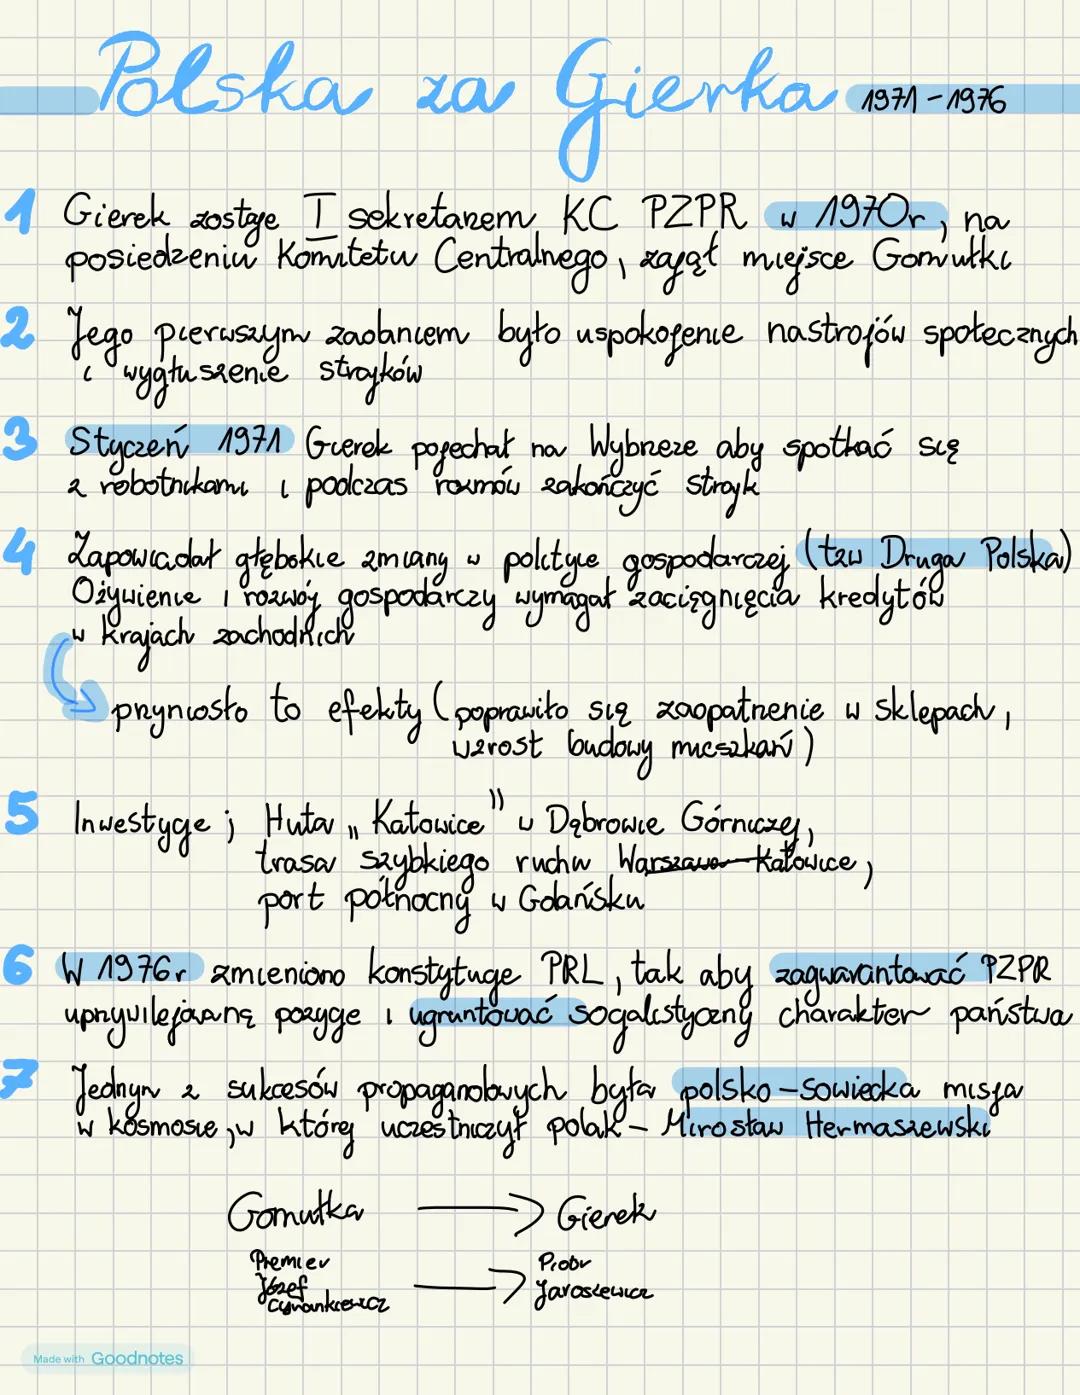 Polska za Gierka 1971-1976
1 Gierek zostaje I sekretarzem KC PZPR w 1970r, na
posiedzeniu Komitetu Centralnego, zajął miejsce Gomułki
2 Jego pierwszym zadaniem było uspokojenie nastrojów społecznych
i wygłuszenie strajków
3 Styczeń 1971 Gierek pojechał na Wybrzeże aby spotkać się
z robotnikami i podczas rozmów zakończyć strajk
4 Zapowiadał głębokie zmiany w polityce gospodarczej (tzw Druga Polska)
Ożywienie i rozwój gospodarczy wymagał zaciągnięcia kredytów
w krajach zachodnich
przyniosło to efekty (poprawiło się zaopatrzenie w sklepach,
wzrost budowy mieszkań)
5 Inwestycje ; Huta „Katowice" w Dąbrowie Górniczej,
trasa szybkiego ruchu Warszawa-Katowice,
port północny w Gdańsku
6 W 1976r zmieniono konstytucje PRL, tak aby zagwarantować PZPR
uprzywilejowaną pozycje i ugruntować socjalistyczny charakter państwa
7 Jednym z sukcesów propagandowych była polsko-sowiecka misja
w kosmosie, w której uczestniczył polak - Mirosław Hermaszewski
Gomułka → Gierek
Premier Piotr
Józef → Jaroszewicz
Cyrankiewicz
Made with Goodnotes